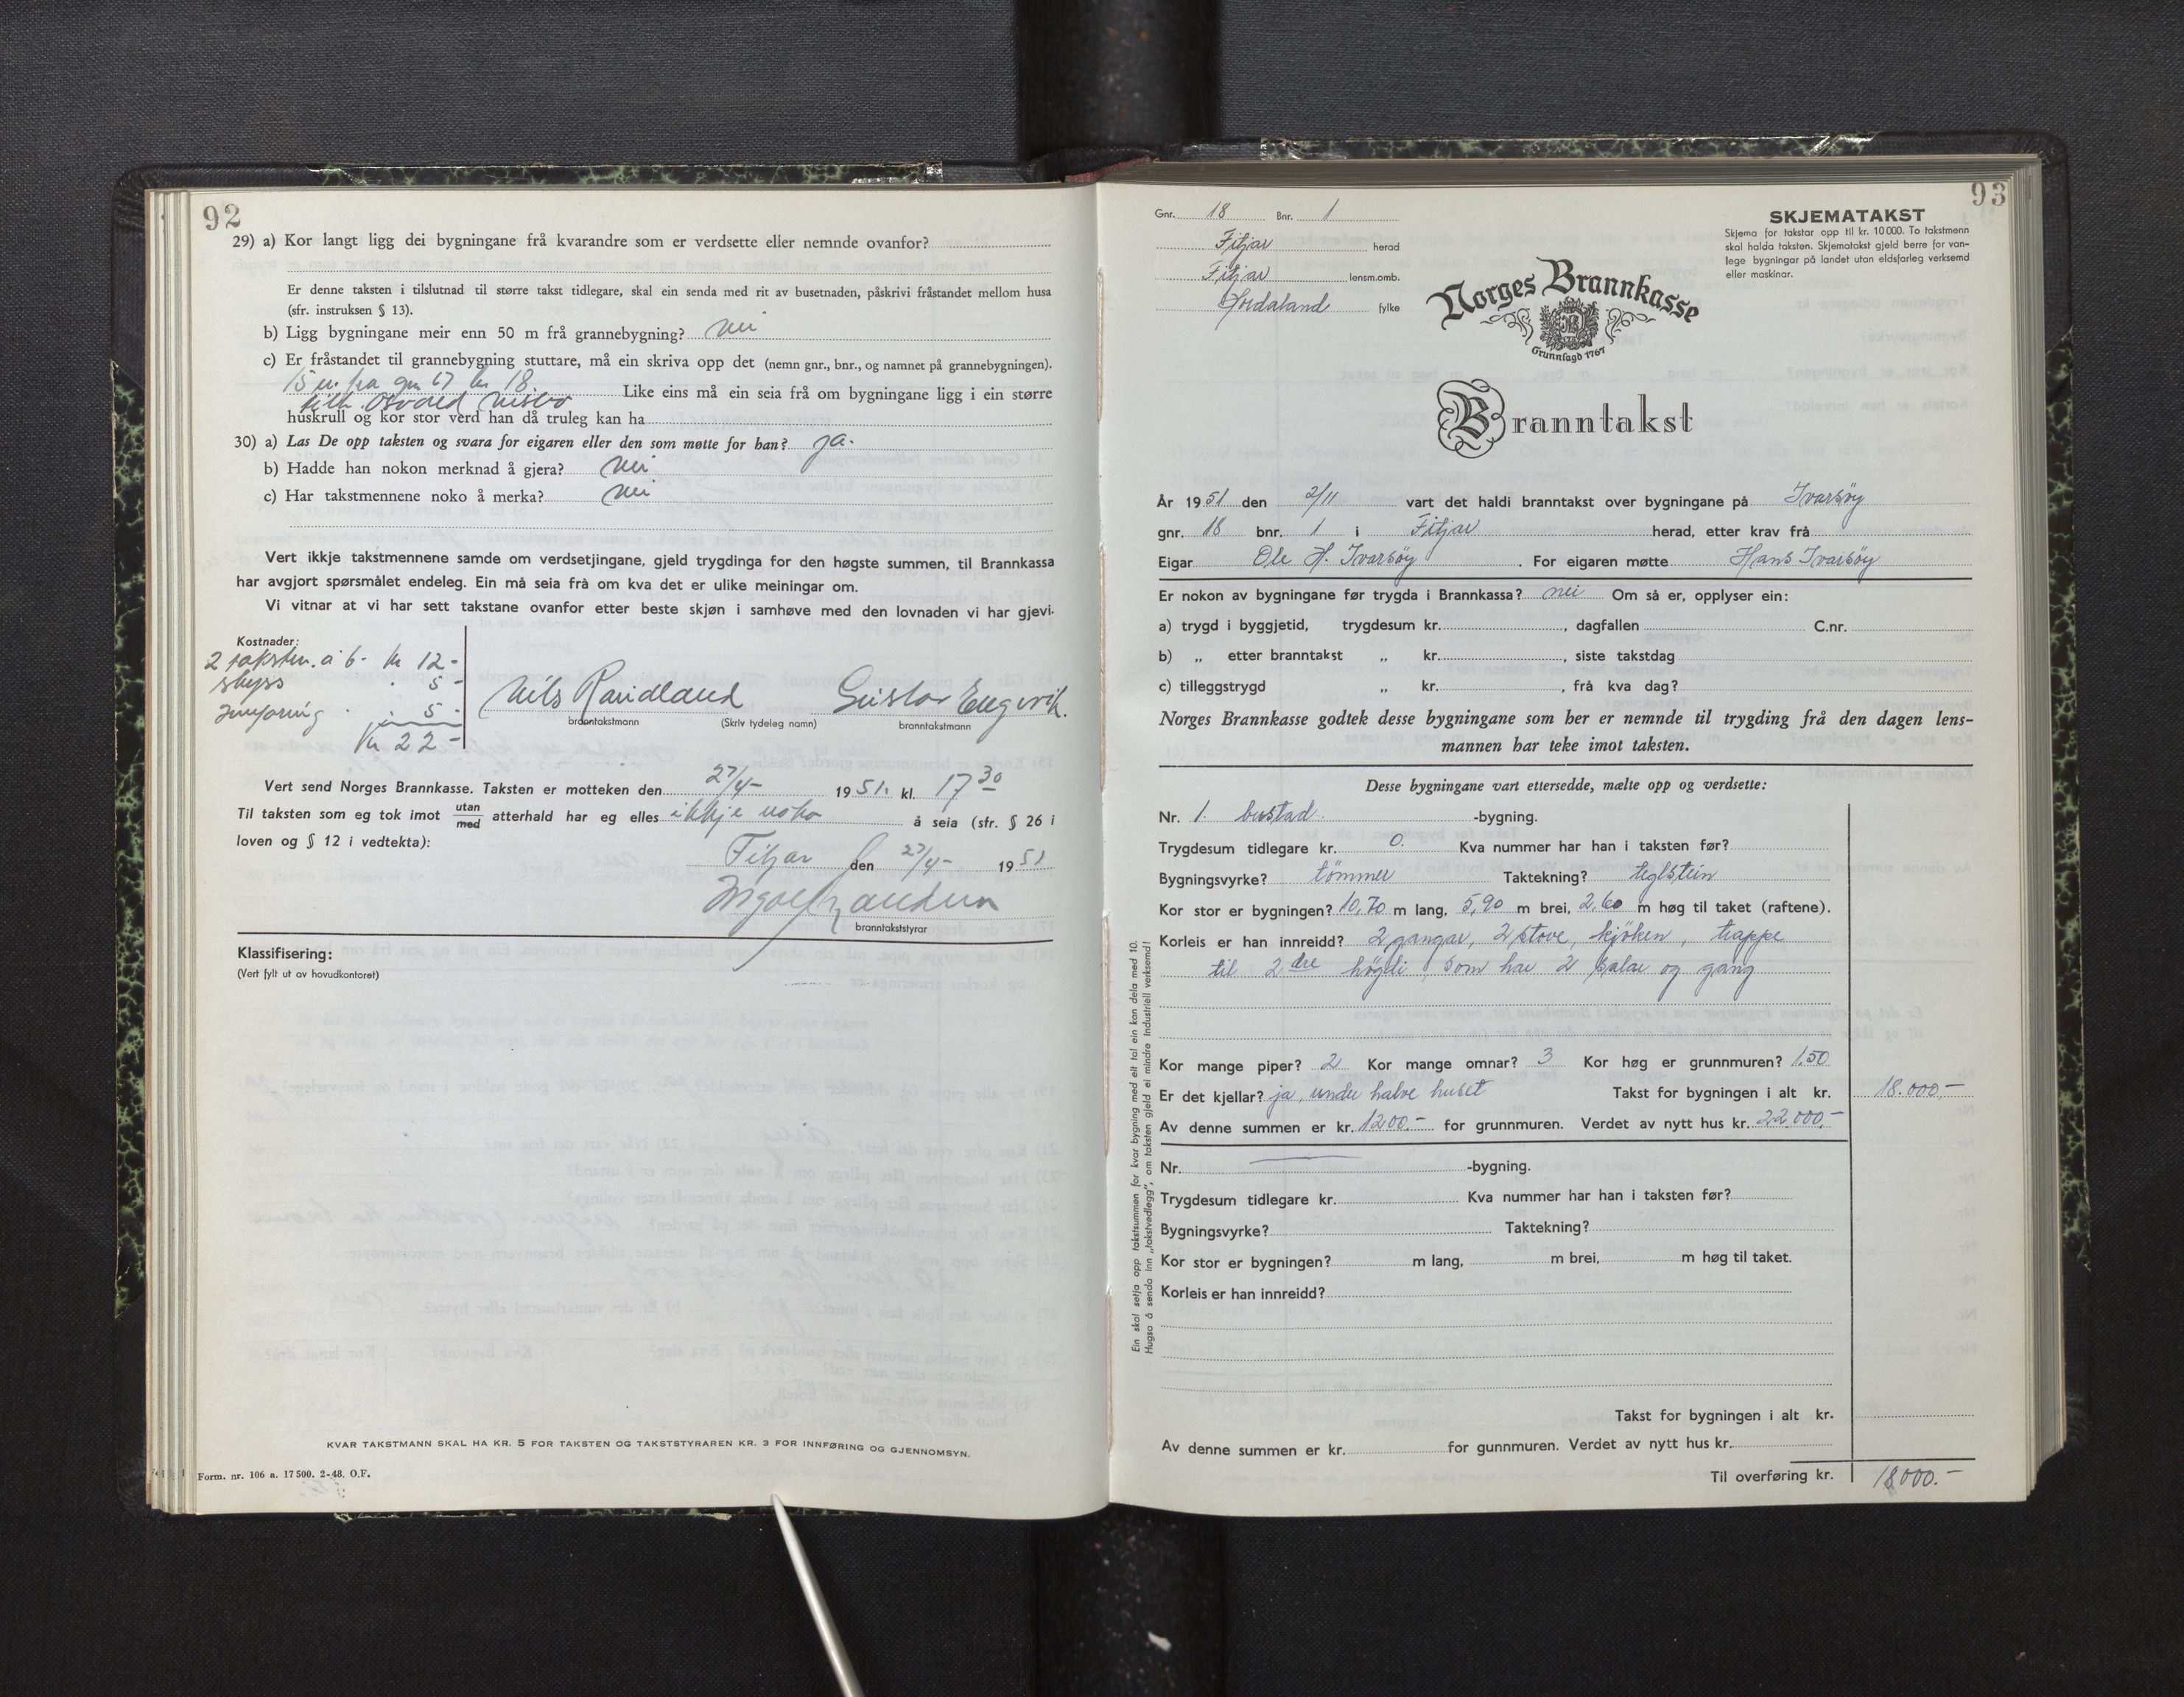 92
29) a) Kor langt ligg dei bygningane frå kvarandre som er verdsette eller nemnde ovanfor?
Er denne taksten i tilslutnad til større takst tidlegare, skal ein senda med rit av busetnaden, påskrivi fråstandet mellom husa
(sfr. instruksen § 13).
b) Ligg bygningane meir enn 50 m frå grannebygning? nei
c) Er fråstandet til grannebygning stuttare, må ein skriva opp det (nemn gnr., bnr., og namnet på grannebygningen).
15 m. fra gnr 67 bnr 18.
tilh. Osvald Like eins må ein seia frå om bygningane ligg i ein større
huskrull og kor stor verd han då truleg kan ha
30) a) Las De opp taksten og svara for eigaren eller den som møtte for han? ja.
b) Hadde han nokon merknad å gjera? nei
c) Har takstmennene noko å merka? nei
Vert ikkje takstmennene samde om verdsetjingane, gjeld trygdinga for den høgste summen, til Brannkassa
har avgjort spørsmålet endeleg. Ein må seia frå om kva det er ulike meiningar om.
Vi vitnar at vi har sett takstane ovanfor etter beste skjøn i samhøve med den lovnaden vi har gjevi.
Kostnader:
2 takstm. a 6- kr 12-
skyss . 5-
Innføring . 5-
Kr 22-
Nils Randland Gustav Engevik.
branntakstmann (Skriv tydeleg namn) branntakstmann
Vert send Norges Brannkasse. Taksten er motteken den 27/4- 1951. kl. 17 30
Til taksten som eg tok imot utan/med atterhald har eg elles ikkje noko å seia (sfr. § 26 i
loven og § 12 i vedtekta):
Fitjar den 27/4- 1951
branntakststyrar
Klassifisering:
(Vert fylt ut av hovudkontoret)
KVAR TAKSTMANN SKAL HA KR. 5 FOR TAKSTEN OG TAKSTSTYRAREN KR. 3 FOR INNFØRING OG GJENNOMSYN.
Form. nr. 106 a. 17500. 2-48. O.F.
93
Gnr. 18 Bnr. 1
Fitjar herad
Fitjar lensm.omb.
Hordaland fylke
SKJEMATAKST
Skjema for takstar opp til kr. 10000. To takstmenn
skal halda taksten. Skjematakst gjeld berre for van-
lege bygningar på landet utan eldsfarleg verksemd
eller maskinar.
Norges Brannkasse
Grunnlagd 1767
Branntakst
År 1951 den 2/11 vart det haldi branntakst over bygningane på Ivarsöy
gnr. 18 bnr. 1 i Fitjar herad, etter krav frå
Eigar Ole H. Ivarsöy. For eigaren møtte Hans Ivarsöy
Er nokon av bygningane før trygda i Brannkassa? nei Om så er, opplyser ein:
a) trygd i byggjetid, trygdesum kr. , dagfallen C.nr.
b) „ etter branntakst „ kr. , siste takstdag
c) tilleggstrygd „ kr. , frå kva dag?
Norges Brannkasse godtek desse bygningane som her er nemnde til trygding frå den dagen lens-
mannen har teke imot taksten.
Desse bygningane vart ettersedde, mælte opp og verdsette:
Nr. 1. bustad -bygning.
Trygdesum tidlegare kr. 0. Kva nummer har han i taksten før?
Bygningsvyrke? tömmer Taktekning? teglstein
Kor stor er bygningen? 10,70 m lang, 5,90 m brei, 2,60 m høg til taket (raftene).
Korleis er han innreidd? 2 gangar, 2 stove, kjöken, trappe
til 2dre högdi, som har 2 salar og gang
Kor mange piper? 2 Kor mange omnar? 3 Kor høg er grunnmuren? 1,50
Er det kjellar? ja, under halve huset Takst for bygningen i alt kr. 18.000,-
Av denne summen er kr. 1200.- for grunnmuren. Verdet av nytt hus kr. 22.000,-
Nr. -bygning.
Trygdesum tidlegare kr. Kva nummer har han i taksten før?
Bygningsvyrke? Taktekning?
Kor stor er bygningen? m lang, m brei, m høg til taket.
Korleis er han innreidd?
Takst for bygningen i alt kr.
Av denne summen er kr. for gunnmuren. Verdet av nytt hus kr.
Til overføring kr. 18000.-
Ein skal setja opp takstsummen for kvar bygning med eit tal ein kan dela med 10.
Hugsa å senda inn „takstvedlegg", om taksten gjeld ei mindre industriell verksemd!